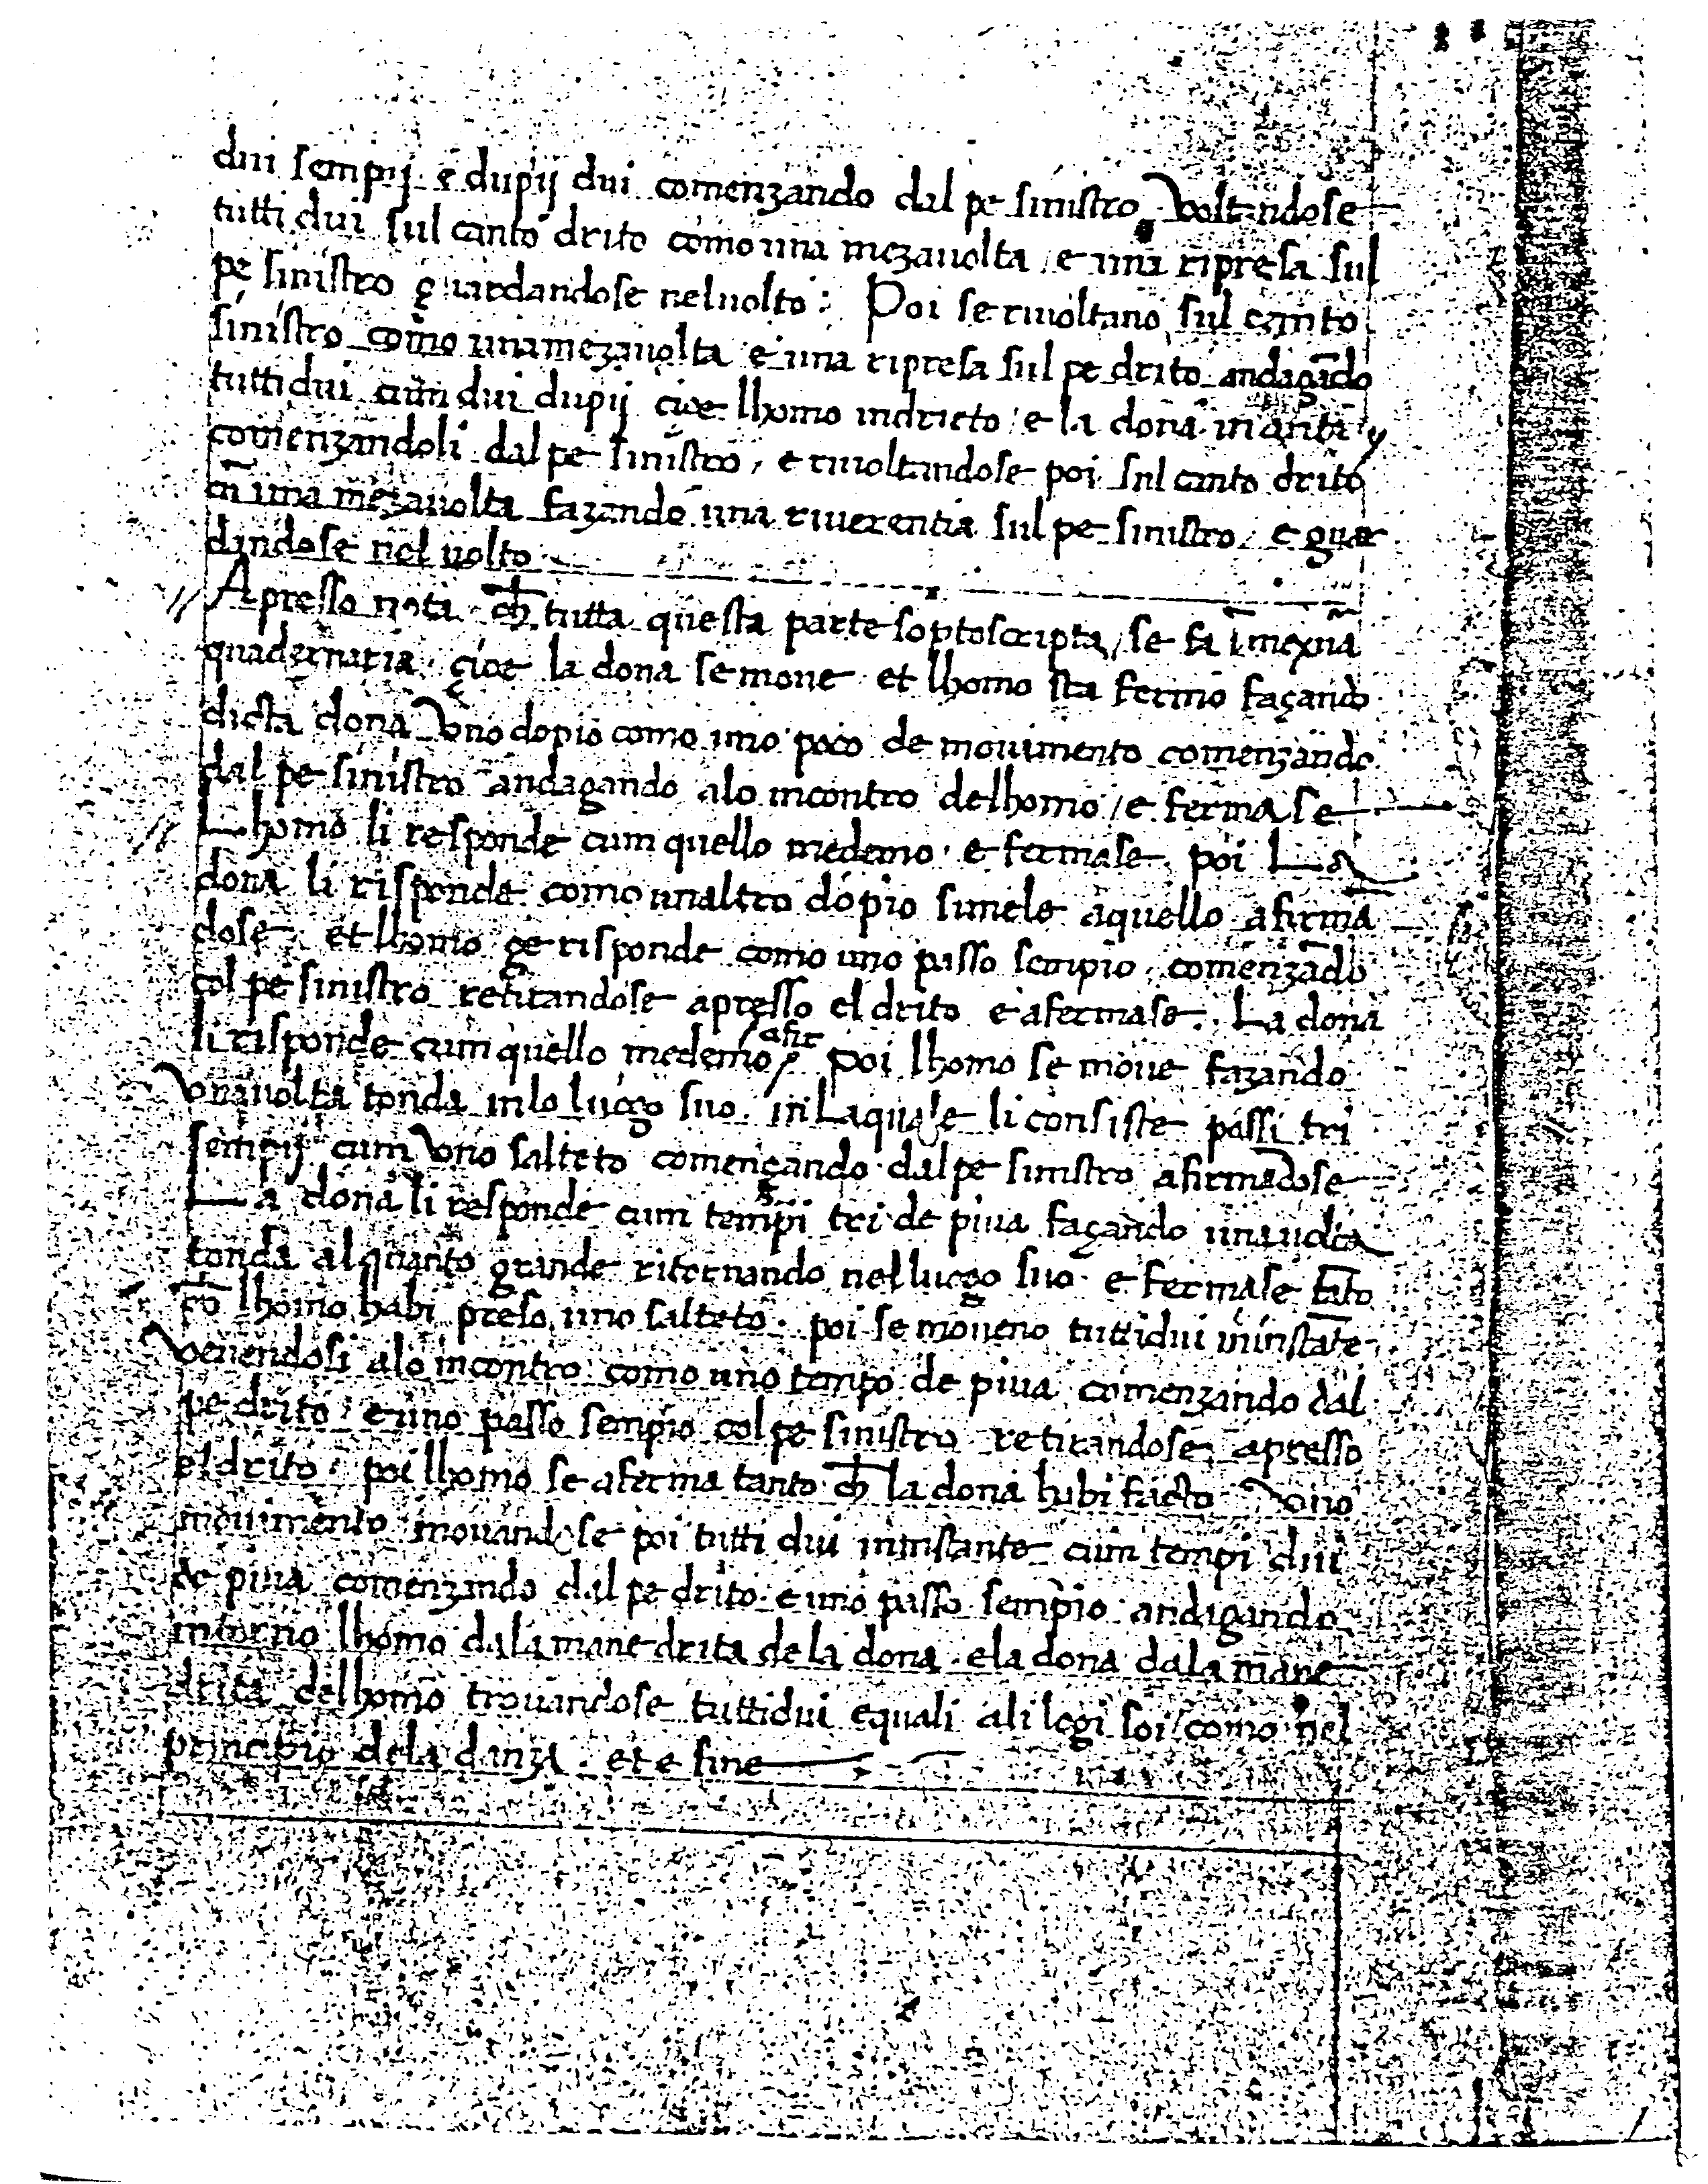 dui sempij e dupij dui comenzando dal pe sinistro. Voltandose
tutti dui sul canto drito como una mezavolta / e una ripresa sul
pe sinistro guardandose nel uolto: Poi se riuoltano sul canto
sinistro como una mezauolta e una ripresa sul pe drito andagādo
tutti dui cum dui dupij cioe lhomo indrieto / e la dona inanti
comenzandoli dal pe sinistro / e riuoltandose poi sul canto drito
cū una mezauolta fazando una riuerentia sul pe sinistro / e guar
dandose nel uolto
Apresso nota ch̄ tutta questa parte soptoscripta / se fa ī mexūa
quadernaria çioe la dona se moue et lhomo sta fermo façando
dicta dona Vno dopio como uno poco de mouimento comenzando
dal pe sinistro andagando alo incontro delhomo / e ferma se
Lhomo li responde cum quello medemo e fermase poi La
dona li risponde como unaltro dopio simele aquello afirmā
dose et lhomo ge risponde como uno passo sempio comenzādo
col pe sinistro retirandose apresso el drito e afermase. La dona
li risponde cum quello medemo / afir poi lhomo se moue fazando
Vnauolta tonda in lo luogo suo in Laquale li consiste passi tri
sempij cum Vno salteto començando dal pe sinistro afirmādose
La dona li responde cum tempi tri de piua façando unauolta
tonda alquanto grande ritornando nel luogo suo e fermase tāto
ch̄ lhomo habi preso uno salteto. poi se moueno tuttidui ininstāte
Venendosi alo incontro como uno tempo de piua comenzando dal
pe drito e uno passo sempio col pe sinistro retirandose apresso
el drito. poi lhomo se aferma tanto ch̄ la dona habi facto Vno
mouimento mouandose poi tutti dui ininstante cum tempi dui
de piua comenzando dal pe drito e uno passo sempio andagando
intorno lhomo dala mane drita de la dona e la dona dala mane
drita delhomo trouandose tuttidui equali ali logi soi / como nel
principio dela danza. et e fine